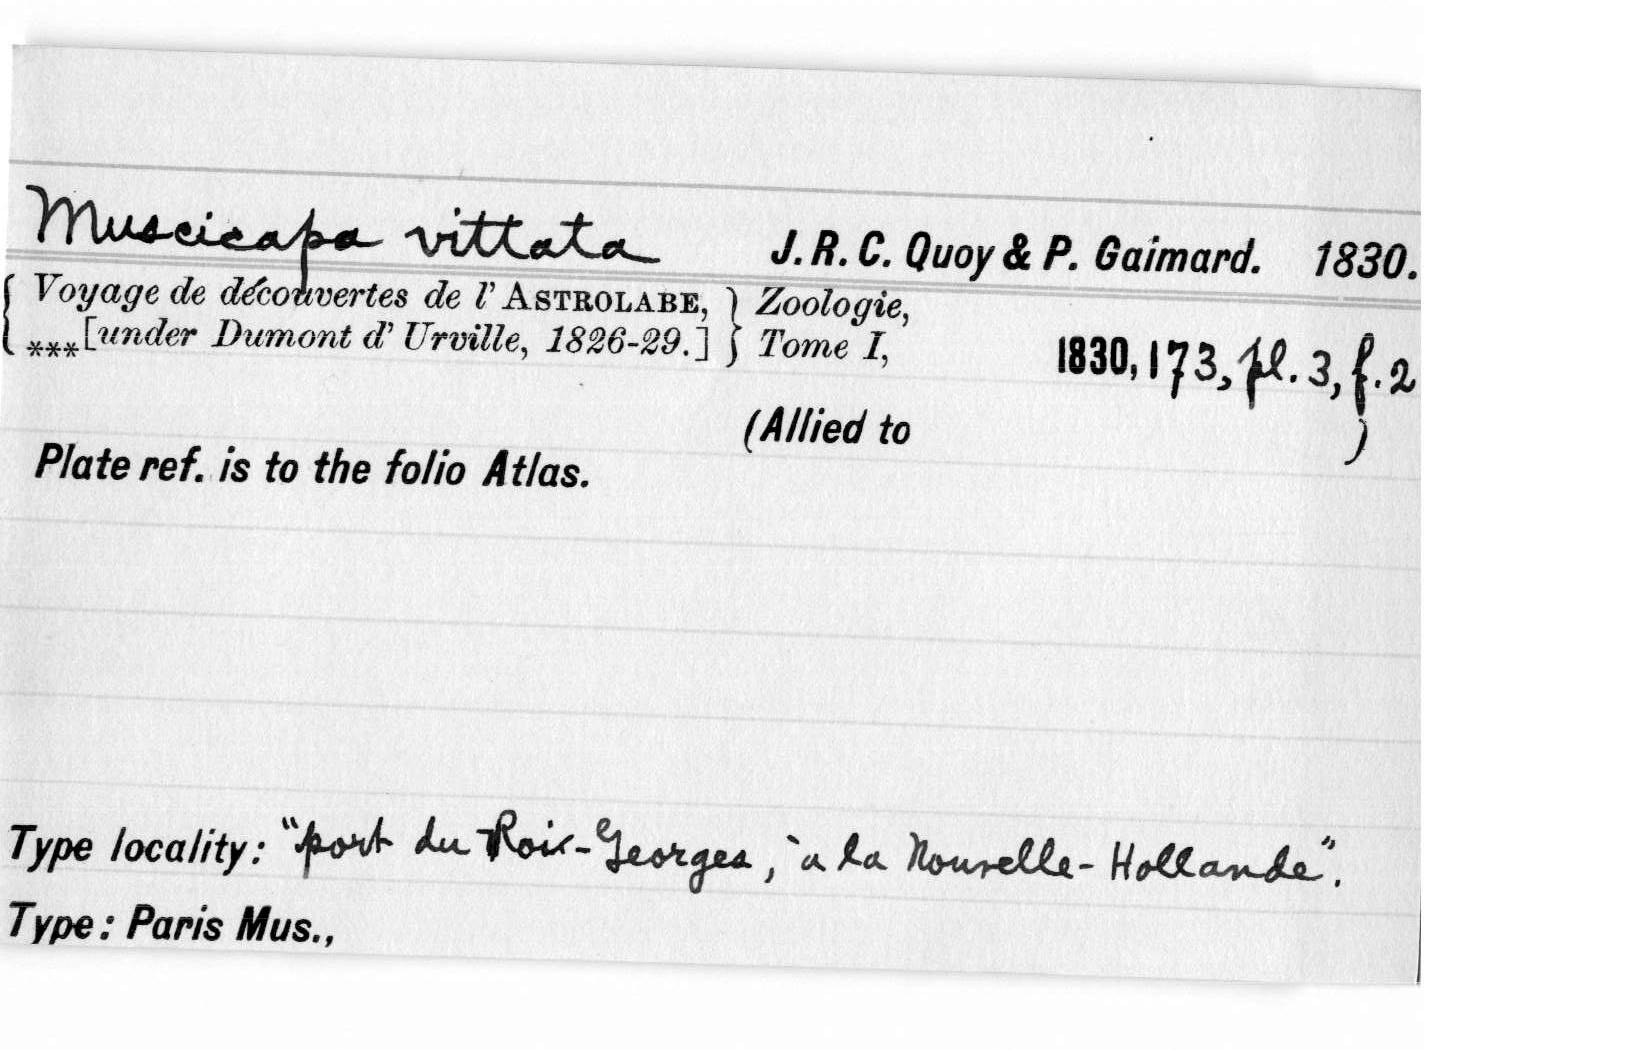 Muscicapa vittata J. R. C. Quoy & P. Gaimard. 1830.
{ Voyage de découvertes de l' ASTROLABE, } Zoologie,
***[under Dumont d' Urville, 1826-29.] } Tome I, 1830, 173, pl. 3, f. 2
(Allied to )
Plate ref. is to the folio Atlas.
Type locality: "port du Roi-Georges, à la Nouvelle-Hollande".
Type: Paris Mus.,